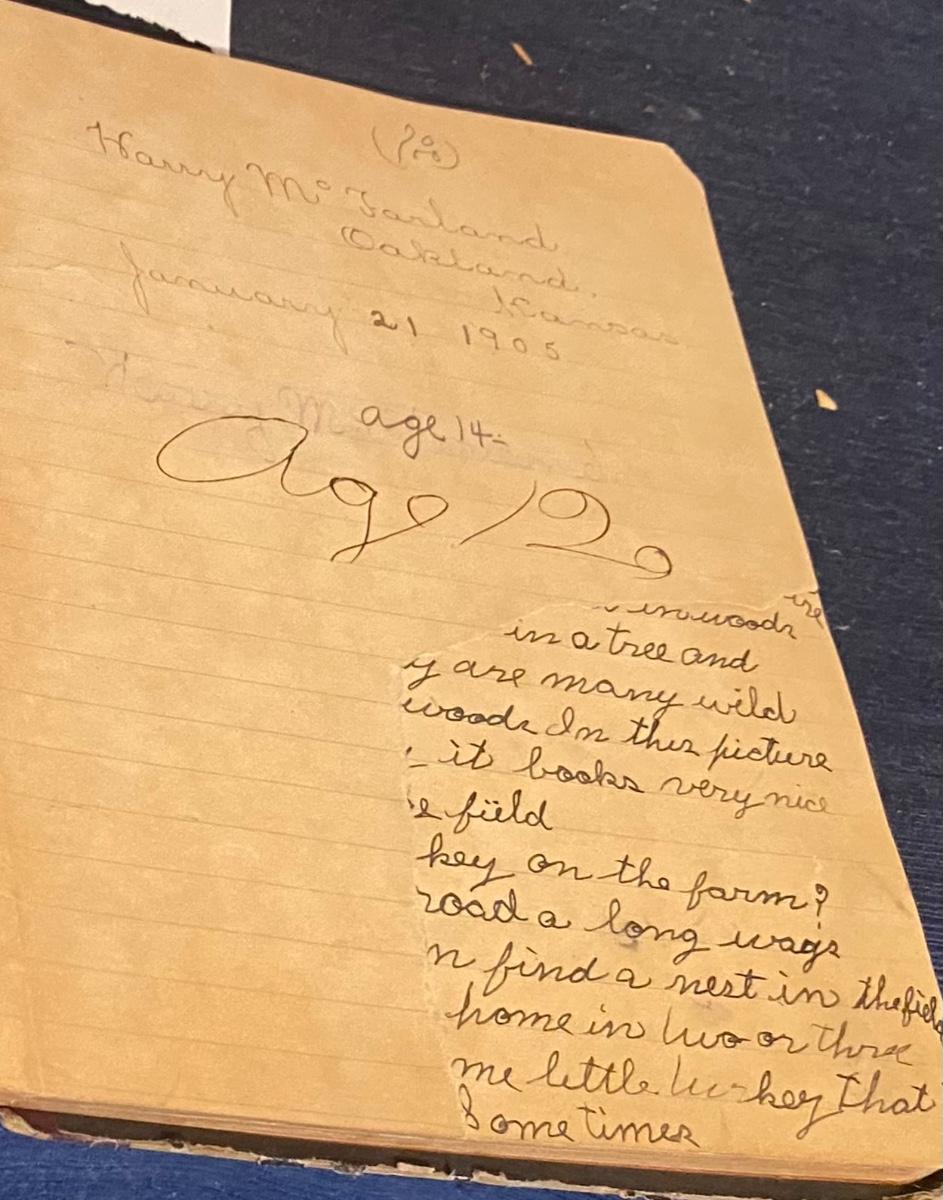 Harry McFarland.
Oakland.
Kansas
January 21 1905
Harry M
age 14=
Age 12.
in woods
in a tree and
y are many wild
woods In this picture
it books very nice
e field
key on the farm?
road a long ways
n find a nest in the field
home in two or three
me little turkey that
Sometimes